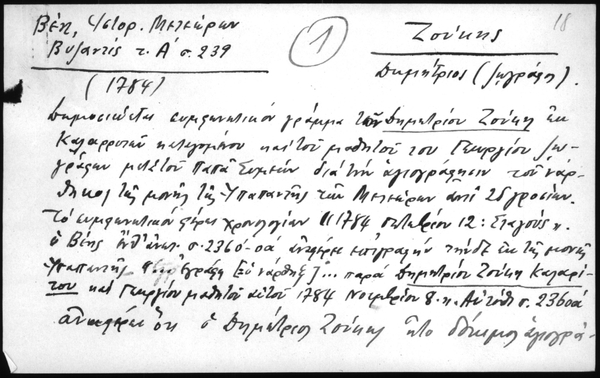 Βέη, Ιστορ. Μετεώρων
Βυζαντίς τ. Α' σ. 239
(1784)
1
18
Ζούκης
Δημήτριος (ζωγράφος).
Δημοσιεύεται συμφωνητικόν γράμμα τοῦ Δημητρίου Ζούκη ἐκ
Καλαρρυτῶν καταγομένου καὶ τοῦ μαθητοῦ του Γεωργίου ζω-
γράφων μετὰ τοῦ Παπᾶ Συμεών διὰ τὴν ἁγιογράφησιν τοῦ νάρ-
θηκος τῆς μονῆς τῆς Ὑπαπαντῆς τῶν Μετεώρων ἀντὶ 25 γροσίων.
Τὸ συμφωνητικὸν φέρει χρονολογίαν "1784 12: Σταγούς".
ὁ Βέης ἐνθ' ἀνωτ. σ. 236 ἀναφέρει ἐπιγραφὴν τήνδε ἐκ τῆς μονῆς
Ὑπαπαντῆς νάρθηξ]... παρὰ Δημητρίου Ζούκη Καλαρί-
του καὶ Γεωργίου μαθητοῦ αὐτοῦ 1784 Νοεμβρίου 8. Αὐτόθι σ. 236
ἀναφέρει ὅτι ὁ Δημήτριος Ζούκης ἦτο δόκιμος ἁγιογρά-